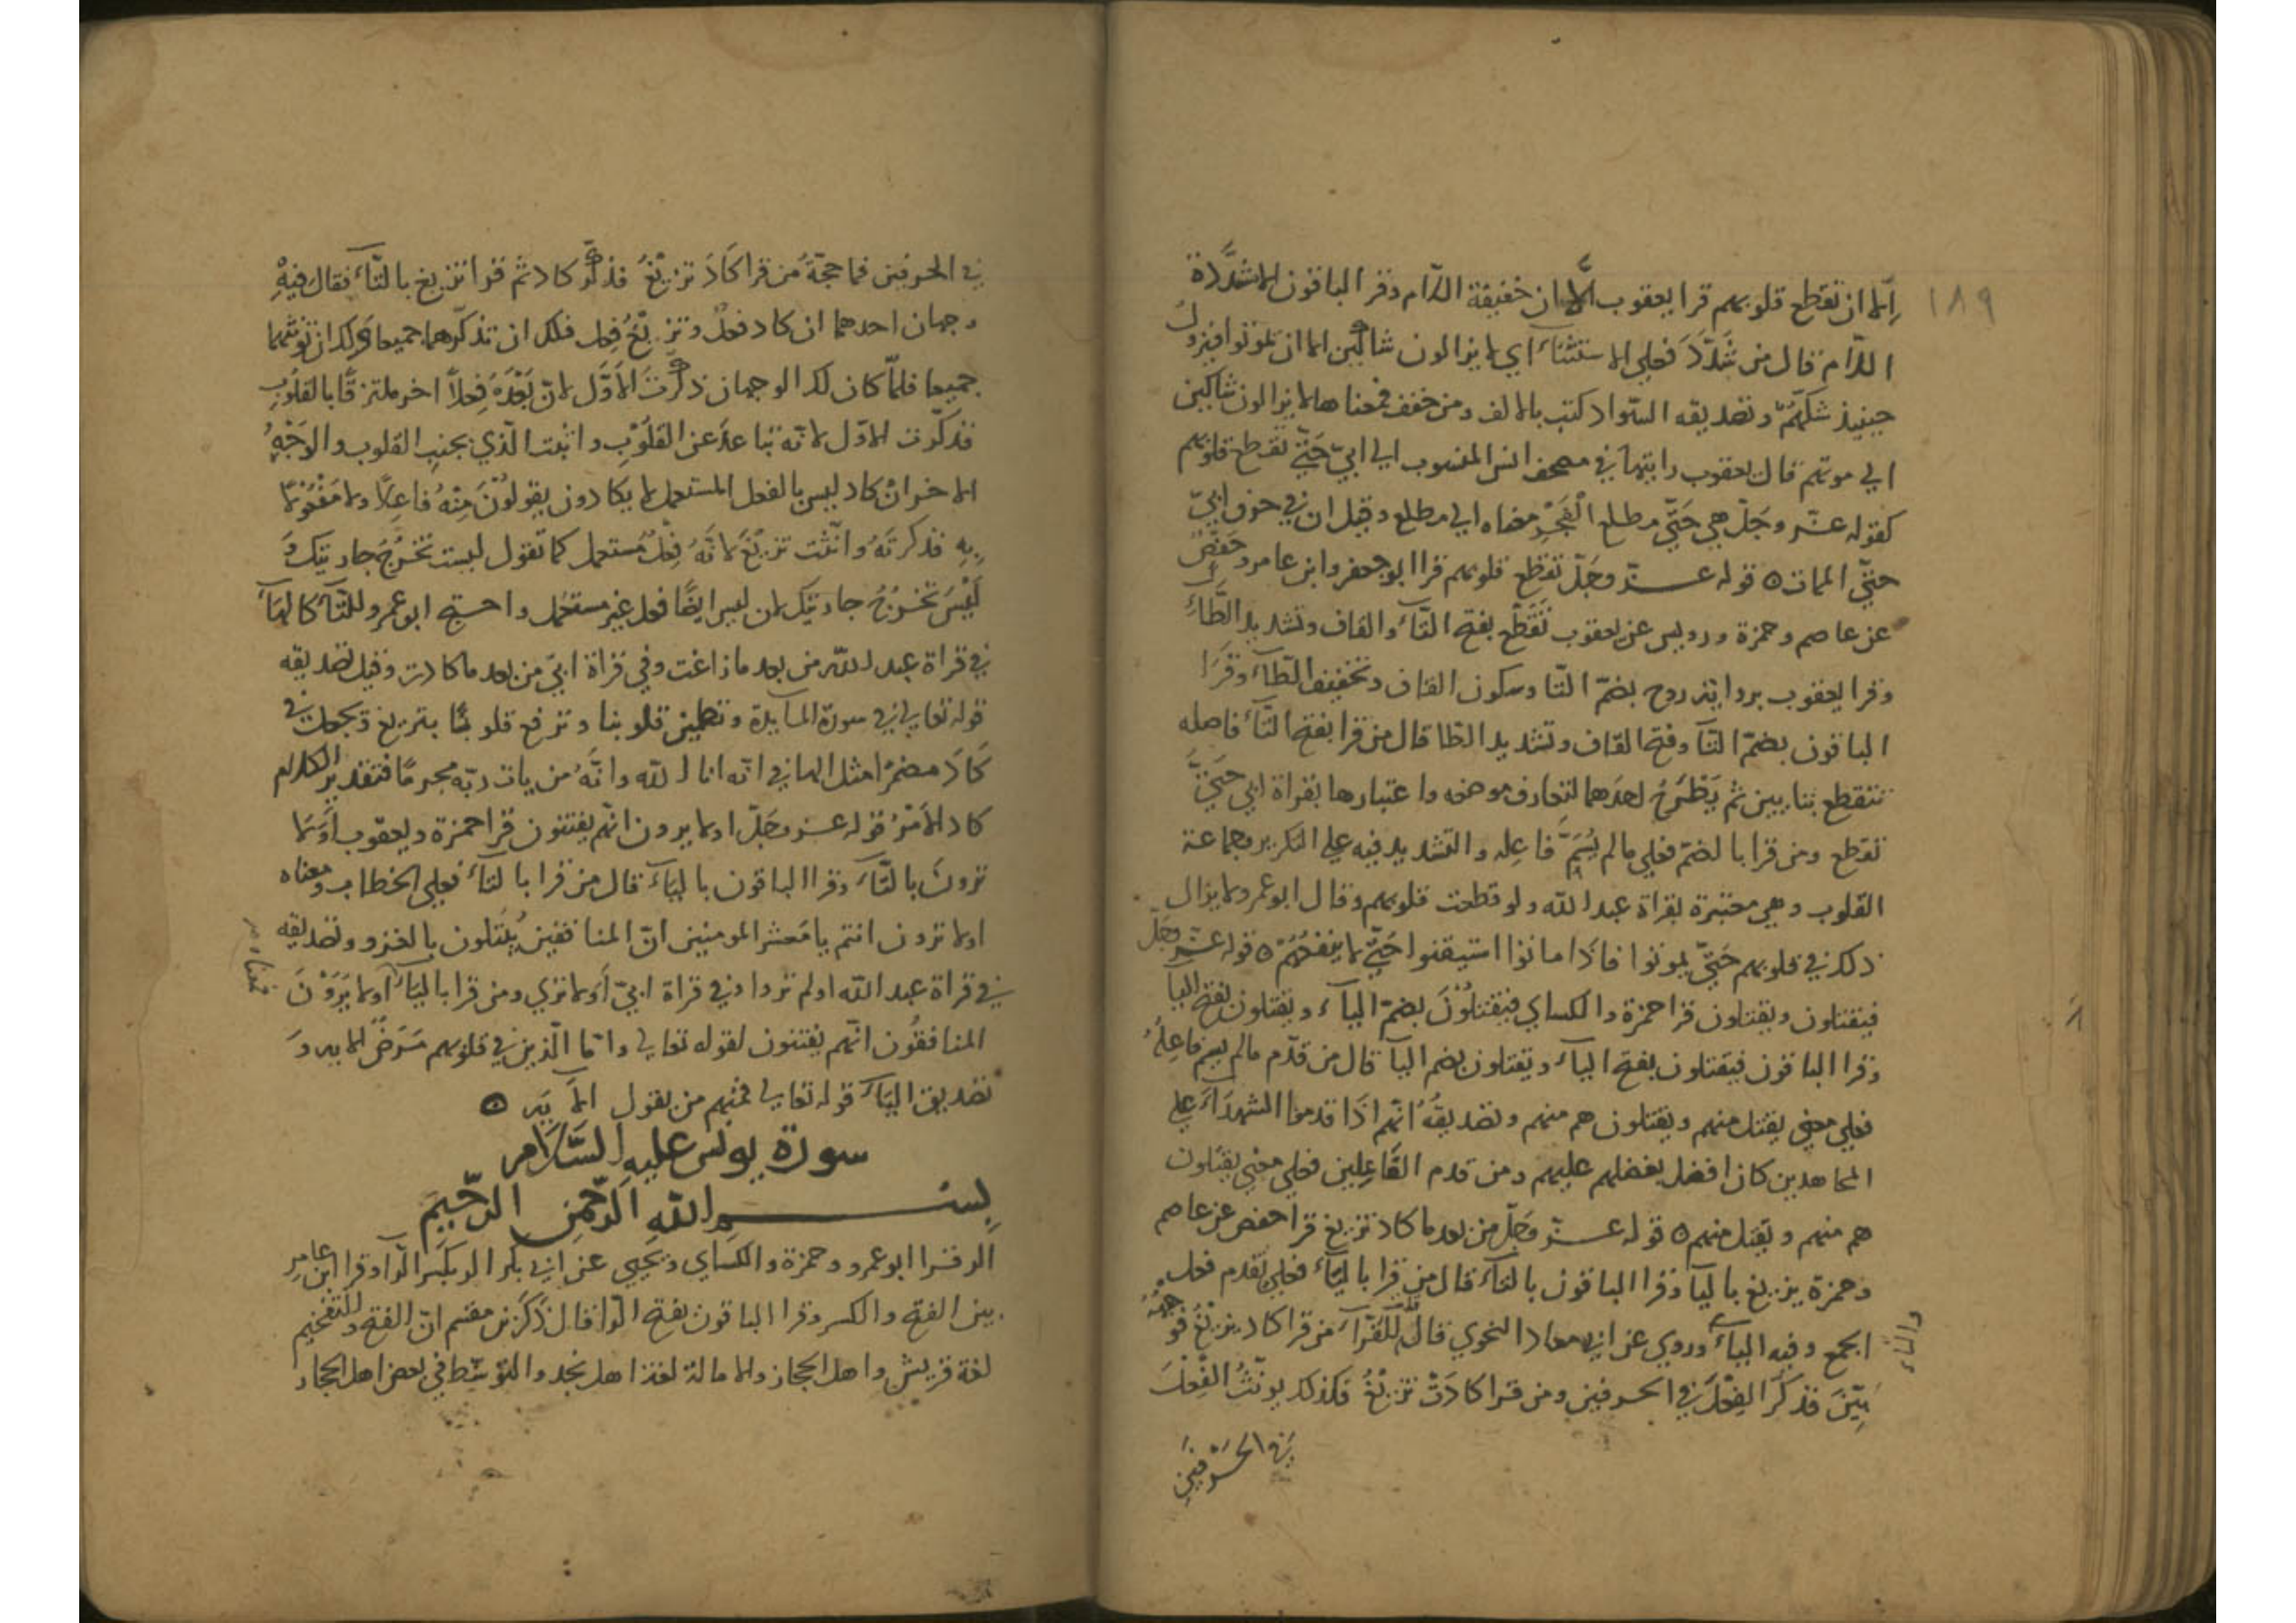 ١٨٩
إلا ان تقطع قلوبهم قرا يعقوب الى ان خفيفة اللام وقر الباقون الا مشدّدة
اللام قال من شدّد فعلى الاستثناء اي لا يزالون شاكّين الا ان يموتوا فيزول
حينيذ شكهم وتصديقه السّواد كتب بالالف ومن خفف فمعناها لا يزالون شاكين
الى موتهم قال يعقوب رايتها في مصحف انس المنسوب الى ابيّ حتّى تقطع قلوبهم
كقوله عزّ وجلّ هي حتّى مطلع الفجر معناه الى مطلع وقيل ان في حرف ابيّ
حتّى الممات ه قوله عزّ وجلّ تقطع قلوبهم قرا ابو جعفر وابن عامر وحفص
عن عاصم وحمزة ورويس عن يعقوب تقطّع بفتح التّاء والقاف وتشديد الطّاء
وقرا يعقوب برواية روح بضمّ التّا وسكون القاف وتخفيف الطّاء وقرا
الباقون بضمّ التآ وفتح القاف وتشديد الطّا قال من قرا بفتح التّاء فاصله
تتقطع بتايين ثم يطرح احدهما لتعارف موضعه واعتبارها بقراة ابي حتّى
تقطع ومن قرا بالضم فعلى ما لم يسمّ فاعله والتّشديد فيه على التكرير وجماعة
القلوب وهي معتبرة بقراة عبد الله ولو قطعت قلوبهم وقال ابو عمرو لا يزال
ذلك في قلوبهم حتّى يموتوا فاذا ماتوا استيقنوا حتّى لا ينفعهم ه قوله عزّ وجلّ
فيقتلون ويقتلون قرا حمزة والكساي فيقتلون بضمّ الياء ويقتلون بفتح اليا
وقرا الباقون فيقتلون بفتح الياء ويقتلون بضم اليآ قال من قدّم ما لم يسم فاعله
فعلى معنى يقتل منهم ويقتلون هم منهم وتصديقه انّهم اذا قدموا الشهداء على
المجاهدين كان افضل بفضلهم عليهم ومن قدم الفاعلين فعلى معنى يقتلون
هم منهم ويقتل منهم ه قوله عزّ وجلّ من بعد ما كاد تزيغ قرا حفص عن عاصم
وحمزة يزيغ باليآ وقرا الباقون بالتآء قال من قرا باليآء فعلى تقدم فعل
الجمع وفيه الياء والتاء وروي عن ابي معاذ النحوي قال للقرآء من قرا كاد يزيغ فوجهه
بيّن فذكّر الفعل في الحرفين ومن قرا كادت تزيغ فكذلك يونّث الفعل
في الحرفين
في الحرفين فما حجّة من قرا كاد تزيغ فذكّر كاد ثم قرا تزيغ بالتّاء فقال فيه
وجهان احدهما ان كاد فعل وتزيغ فعل فلك ان تذكّرهما جميعا ولك ان تؤنثهما
جميعا فلمّا كان لك الوجهان ذكّرت الاوّل لانّ بعده فعلاً اخر ملتزقاً بالقلوب
فذكّرت الاوّل لانّه تباعد عن القلوب وانثت الّذي بجنب القلوب والوجه
الاخر انّ كاد ليس بالفعل المستعمل لا يكادون يقولون منه فاعلاً ولا مفعولا
به فذكرته وانّثت تزيغ لانّه فعل مستعمل كما تقول ليست تخرج جاريتك و
ليس تخرج جاريتك لان ليس ايضاً فعل غير مستعمل واحتج ابو عمرو للتّآء كالهآء
في قراة عبد الله من بعد ما زاغت وفي قراة ابيّ من بعد ما كادت وقيل تصديقه
قوله تعالى في سورة المآيدة وتطمئن قلوبنا وترفع قلوبا بتزيغ وتجعل في
كاد مضمرا مثل الها في انّه انا الله وانّه من يات ربّه مجرماً فتقدير الكلام
كاد الامر قوله عزّ وجلّ اولا يرون انّهم يفتنون قرا حمزة ويعقوب اولا
ترون بالتّاء وقرا الباقون باليآء قال من قرا بالتآء فعلى الخطاب ومعناه
اولا ترون انتم يا معشر المومنين انّ المنافقين يبتلون بالغزو وتصديقه
في قراة عبد الله اولم تروا وفي قراة ابيّ اولا ترى ومن قرا باليآء فمعناه اولا يرون
المنافقون انّهم يفتنون لقوله تعالى وامّا الّذين في قلوبهم مرض الاية و
تصديق اليآء قوله تعالى فمنهم من يقول الآية ه
سورة يونس عليه السّلام
بسم الله الرّحمن الرّحيم
الر قرا ابو عمرو وحمزة والكساي ويحيى عن ابي بكر الر بكسر الرّا وقرا ابن عامر
بين الفتح والكسر وقرا الباقون بفتح الرّا قال ذكر بن مقسم انّ الفتح والتفخيم
لغة قريش واهل الحجاز والامالة لغة اهل نجد والتوسّط في بعض اهل الحجاز